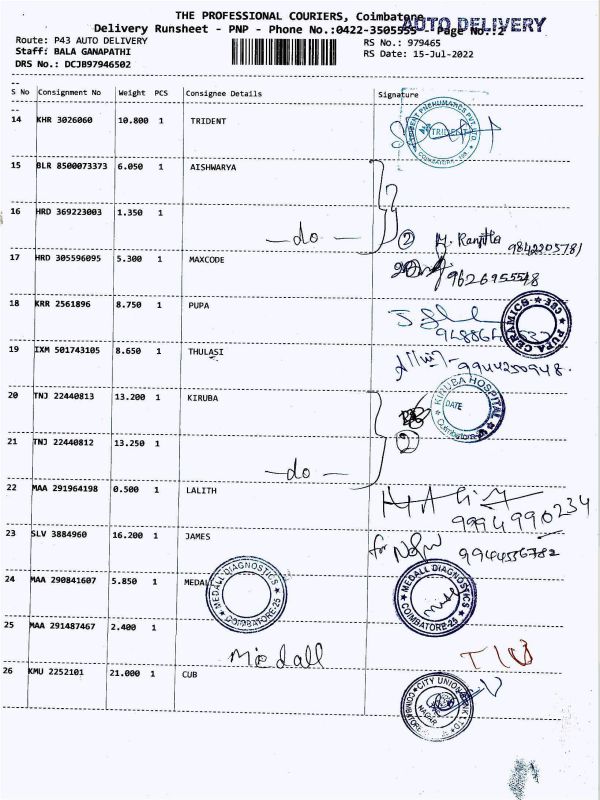 THE PROFESSIONAL COURIERS, Coimbatore
AUTO DELIVERY
Delivery Runsheet - PNP - Phone No.:0422-3505555 Page No.:2
Route: P43 AUTO DELIVERY
RS No.: 979465
Staff: BALA GANAPATHI
RS Date: 15-Jul-2022
DRS No.: DCJB97946502
S No Consignment No Weight PCS Consignee Details Signature
14 KHR 3026060 10.800 1 TRIDENT
TRIDENT PNEUMATICS PVT. LTD. TRIDENT COIMBATORE
15 BLR 8500073373 6.050 1 AISHWARYA
16 HRD 369223003 1.350 1
—do— 2 M. Ranjitha 9842205781
17 HRD 305596095 5.300 1 MAXCODE
9626955548
18 KRR 2561896 8.750 1 PUPA
PUPA CERAMICS CBE
19 IXM 501743105 8.650 1 THULASI
9944250948
20 TNJ 22440813 13.200 1 KIRUBA
KIRUBA HOSPITAL DATE Coimbatore
21 TNJ 22440812 13.250 1
2
—do—
22 MAA 291964198 0.500 1 LALITH
9994990234
23 SLV 3884960 16.200 1 JAMES
for 9944556782
24 MAA 290841607 5.850 1 MEDAL
MEDALL DIAGNOSTICS COIMBATORE-25
MEDALL DIAGNOSTICS COIMBATORE-25
25 MAA 291487467 2.400 1
Medall
26 KMU 2252101 21.000 1 CUB
CITY UNION BANK LTD NAGAR COIMBATORE